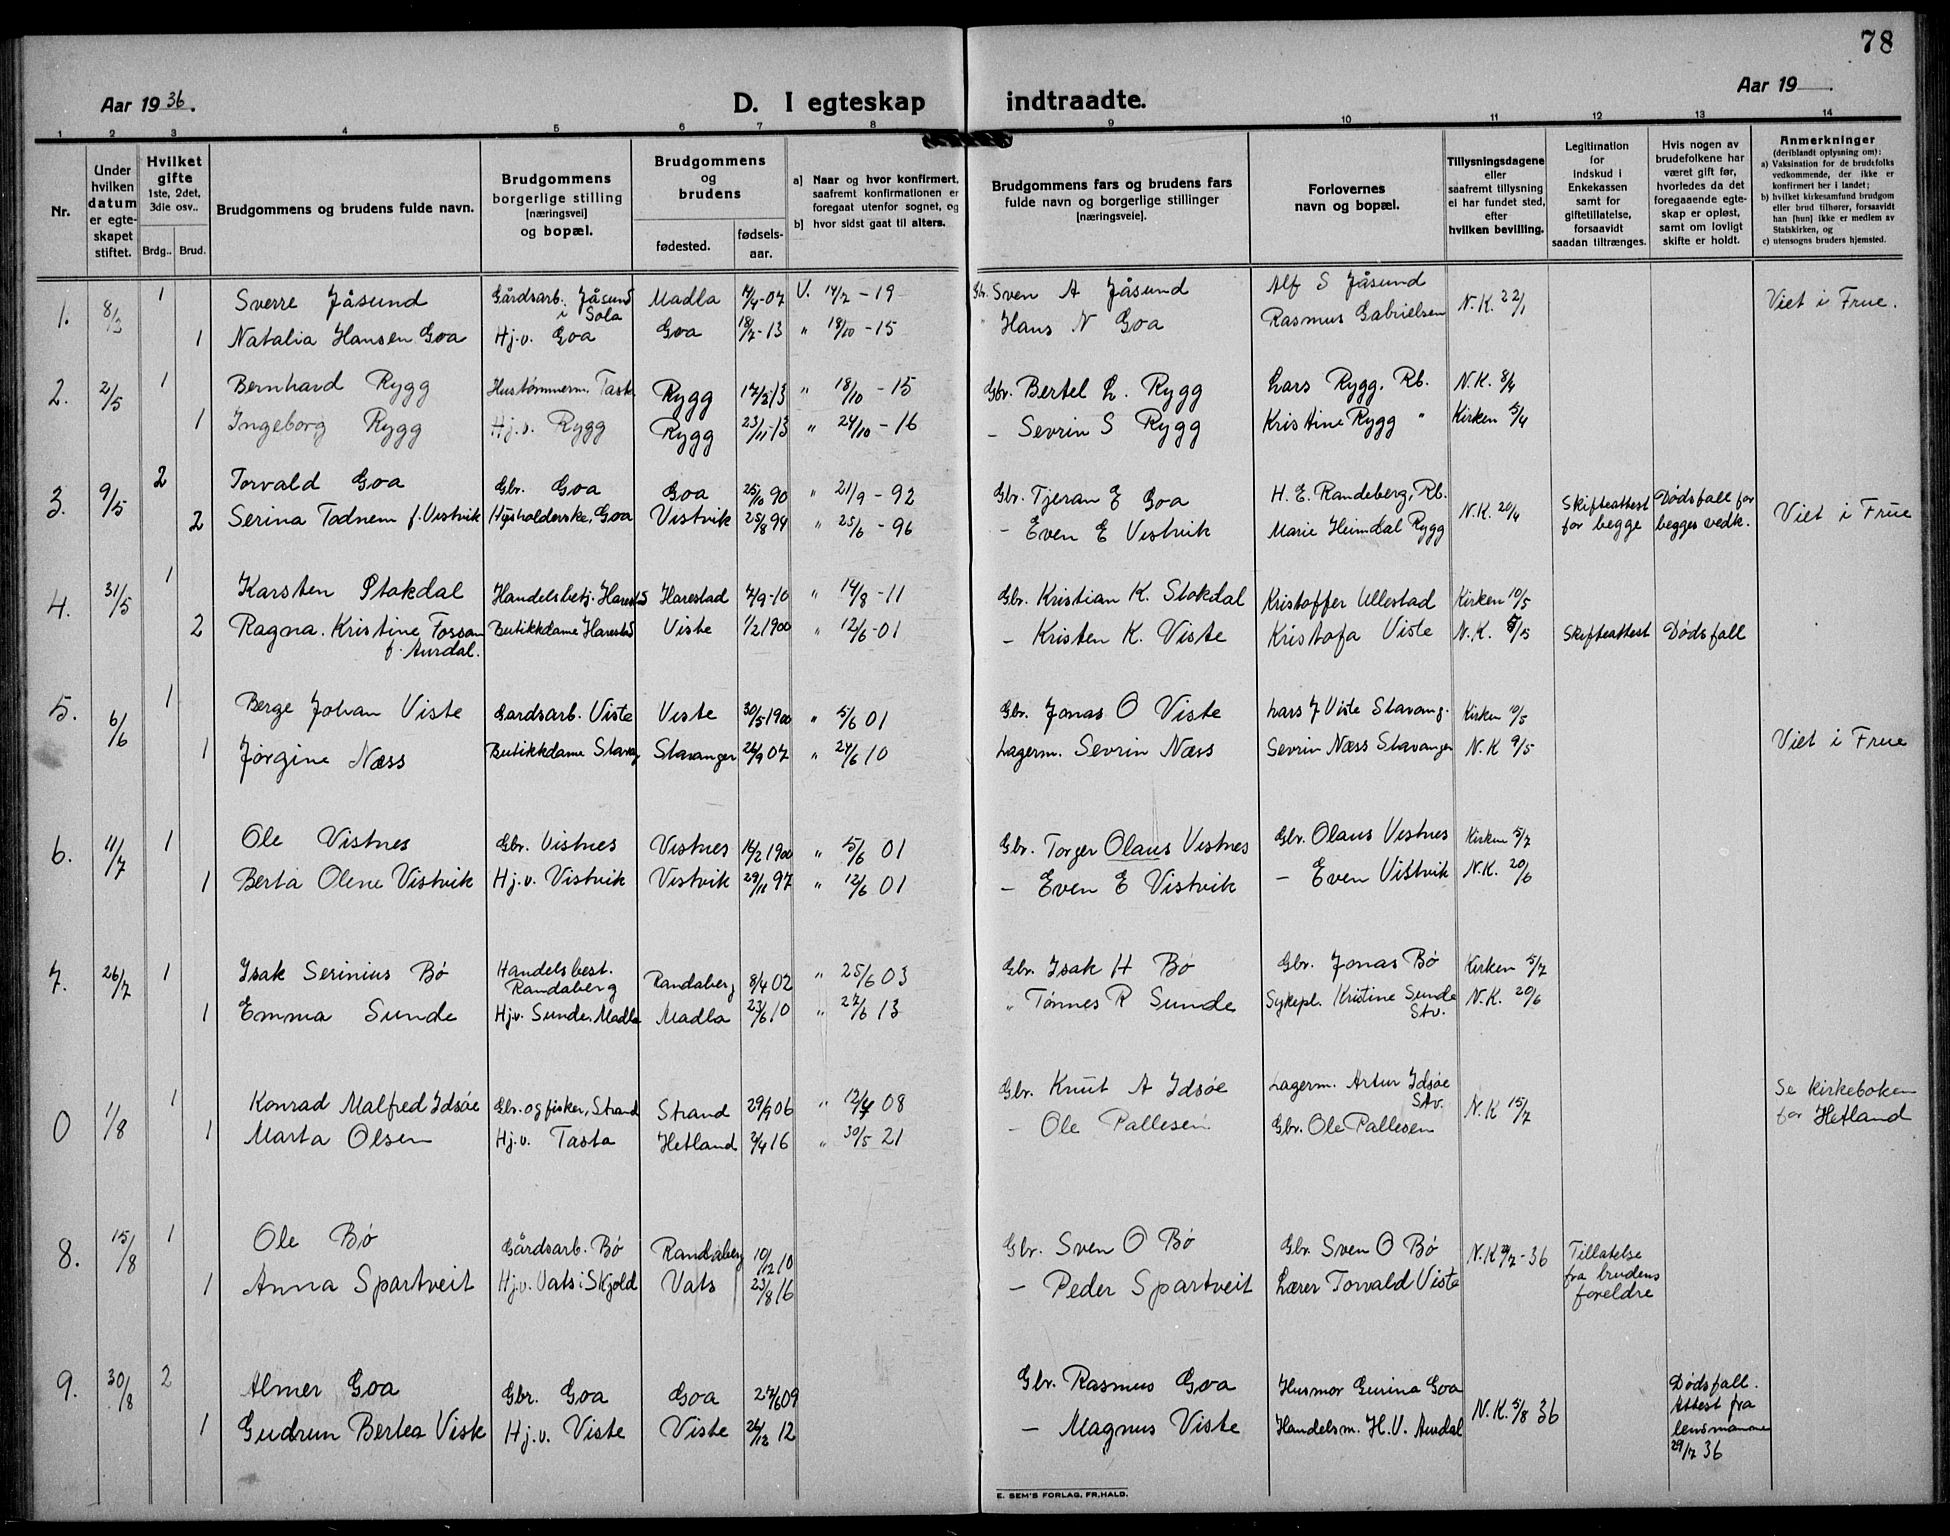 78
Aar 1936.
D. I egteskap indtraadte.
Aar 19
1 2 3 4 5 6 7 8 9 10 11 12 13 14
Nr.
Under hvilken datum er egteskapet stiftet.
Hvilket gifte 1ste, 2det, 3die osv..
Brdg.. Brud.
Brudgommens og brudens fulde navn.
Brudgommens borgerlige stilling [næringsvei] og bopæl.
Brudgommens og brudens
fødested. fødsels-aar.
a) Naar og hvor konfirmert, saafremt konfirmationen er foregaat utenfor sognet, og
b) hvor sidst gaat til alters.
Brudgommens fars og brudens fars fulde navn og borgerlige stillinger [næringsveie].
Forlovernes navn og bopæl.
Tillysningsdagene eller saafremt tillysning ei har fundet sted, efter hvilken bevilling.
Legitimation for indskud i Enkekassen samt for giftetillatelse, forsaavidt saadan tiltrænges.
Hvis nogen av brudefolkene har været gift før, hvorledes da det foregaaende egteskap er opløst, samt om lovligt skifte er holdt.
Anmerkninger (deriblandt oplysning om): a) Vaksination for de brudefolks vedkommende, der ikke er konfirmert her i landet; b) hvilket kirkesamfund brudgom eller brud tilhører, forsaavidt han [hun] ikke er medlem av Statskirken, og c) utensogns bruders hjemsted.
1. 8/3 1 Sverre Jåsund Gårdsarb. Jåsund i Sola Madla 14/4-07 V. 14/7-19 Gbr. Sven A Jåsund Alf S Jåsund N.K. 22/1 Viet i Frue.
1 Natalia Hansen Goa Hj.v. Goa Goa 18/7-13 " 18/10-15 " Hans N Goa Rasmus Gabrielsen
2. 2/5 1 Bernhard Rygg Hustømmerm. Tasta Rygg 17/2 13 " 18/10-15 Gbr. Bertel L. Rygg Lars Rygg, Rb. N.K. 8/4
1 Ingeborg Rygg Hj.v. Rygg Rygg 23/11-13 " 24/10-16 – Sevrin S Rygg Kristine Rygg " Kirken 5/4
3. 9/5 2 Torvald Goa Gbr. Goa Goa 25/10 90 " 21/9-92 Gbr. Tjeran E Goa H. E. Randeberg, Rb. N.K. 20/4 Skifteattest for begge Dødsfall for begges vedk. Viet i Frue
2 Serina Todnem f. Vistvik Husholderske, Goa Vistvik 25/8 94 " 25/6-96 – Even E Vistvik Marie Heimdal Rygg
4. 31/5 1 Karsten Stokdal Handelsbetj. Harestad Harestad 7/9-10 " 14/8-11 Gbr. Kristian K. Stokdal Kristoffer Ullestad Kirken 10/5
2 Ragna Kristine Fossan f. Aurdal. Butikkdame Harestad Viste 1/2 1900 " 12/6-01 – Kristen K. Viste Kristofa Viste N.K. 5/5 Skifteattest Dødsfall
5. 6/6 1 Berge Johan Viste Gardsarb. Viste Viste 30/5 1900 " 5/6 01 Gbr. Jonas O Viste Lars J Viste Stavang. Kirken 10/5
1 Jørgine Næss Butikkdame Stavang Stavanger 26/9 07 " 24/6 10 Lagerm. Sevrin Næss Sevrin Næss Stavanger N.K 9/5 Viet i Frue
6. 11/7 1 Ole Vistnes Gbr. Vistnes Vistnes 14/2 1900 " 5/6 01 Gbr. Torger Olaus Vestnes Gbr. Olaus Vestnes Kirken 5/7
1 Berta Olene Vistvik Hj.v. Vistvik Vistvik 29/11 97 " 12/6 01 – Even E Vistvik – Even Vistvik N.K. 20/6
7. 26/7 1 Isak Serinius Bø Handelsbest. Randaberg Randaberg 8/4 02 " 25/6 03 Gbr. Isak H Bø Gbr. Jonas Bø Kirken 5/7
1 Emma Sunde Hj.v. Sunde, Madla Madla 23/6 10 " 27/6 13 " Tønnes R Sunde Sykepl. Kristine Sunde Stv. N.K. 20/6
0 1/8 1 Konrad Malfred Idsøe Gbr. og fisker, Strand Strand 29/9 06 " 12/4 08 Gbr. Knut A Idsøe Lagerm. Artur Idsøe Stv. N.K 15/7 Se kirkeboken for Hetland
1 Marta Olsen Hj.v. Tasta Hetland 7/4 16 " 30/5 21 – Ole Pallesen Gbr. Ole Pallesen
8. 15/8 1 Ole Bø Gårdsarb. Bø Randaberg 10/12 10 Gbr. Sven O Bø Gbr. Sven O Bø N.K 21/7-36 Tillatelse fra brudens foreldre
1 Anna Spartveit Hj.v. Vats i Skjold Vats 23/8 16 – Peder Spartveit Lærer Torvald Viste
9. 30/8 2 Almer Goa Gbr. Goa Goa 27/6 09 Gbr. Rasmus Goa Husmor Gurina Goa N.K. 5/8 36 Dødsfall. Attest fra lensmannen 29/7 36
1 Gudrun Bertea Viste Hj.v. Viste Viste 26/12 12 – Magnus Viste Handelsm. H.V. Aurdal
E. SEM'S FORLAG, FR.HALD.